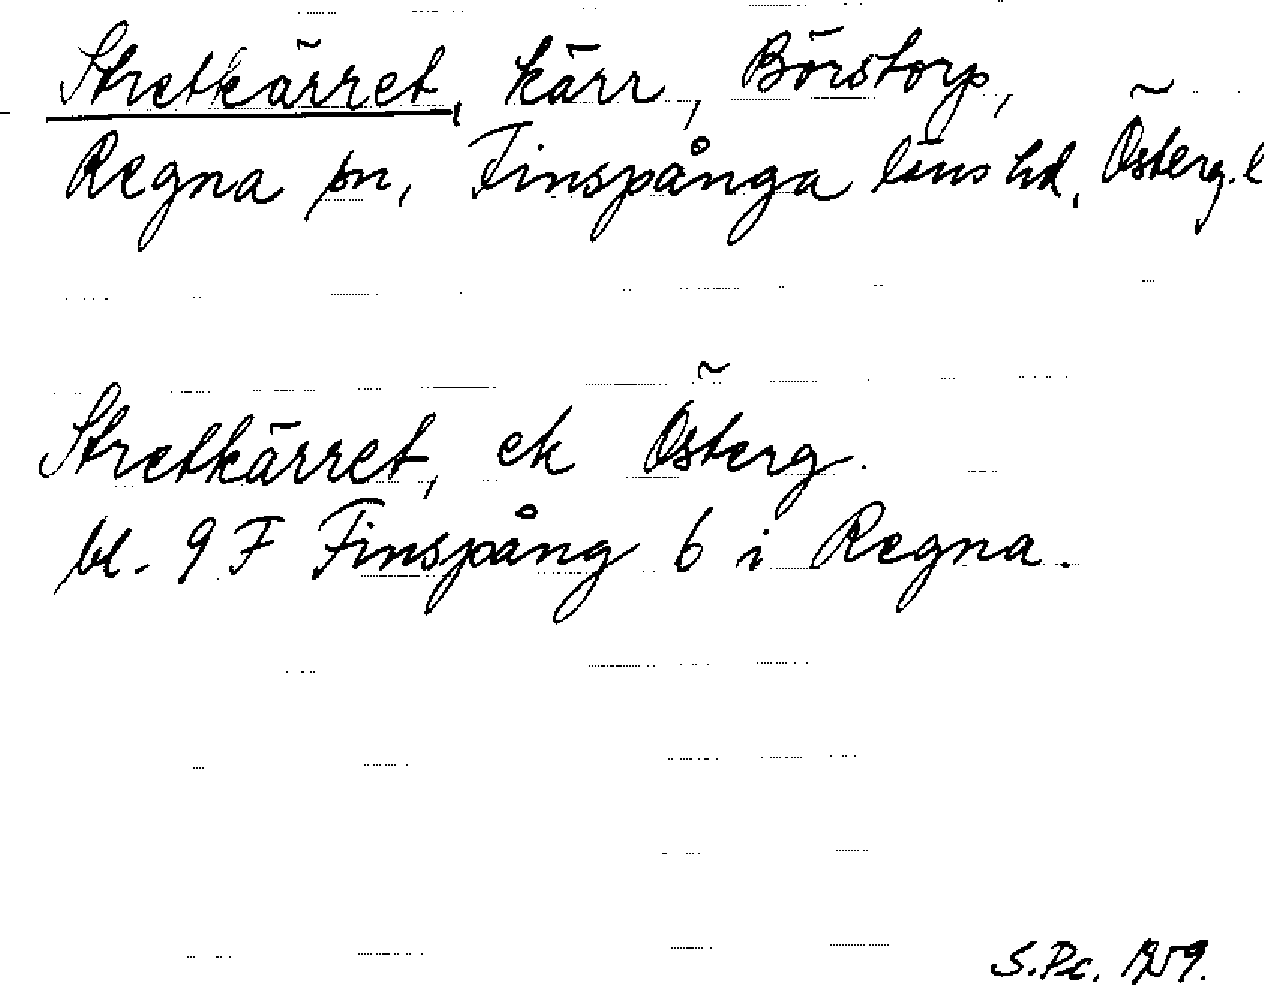 Stretkärret, kärr, Börstorp,
Regna sn, Finspånga läns hd, Österg. l
Stretkärret, ek Österg.
bl. 9 F Finspång 6 i Regna.
S.Pc. 1959.